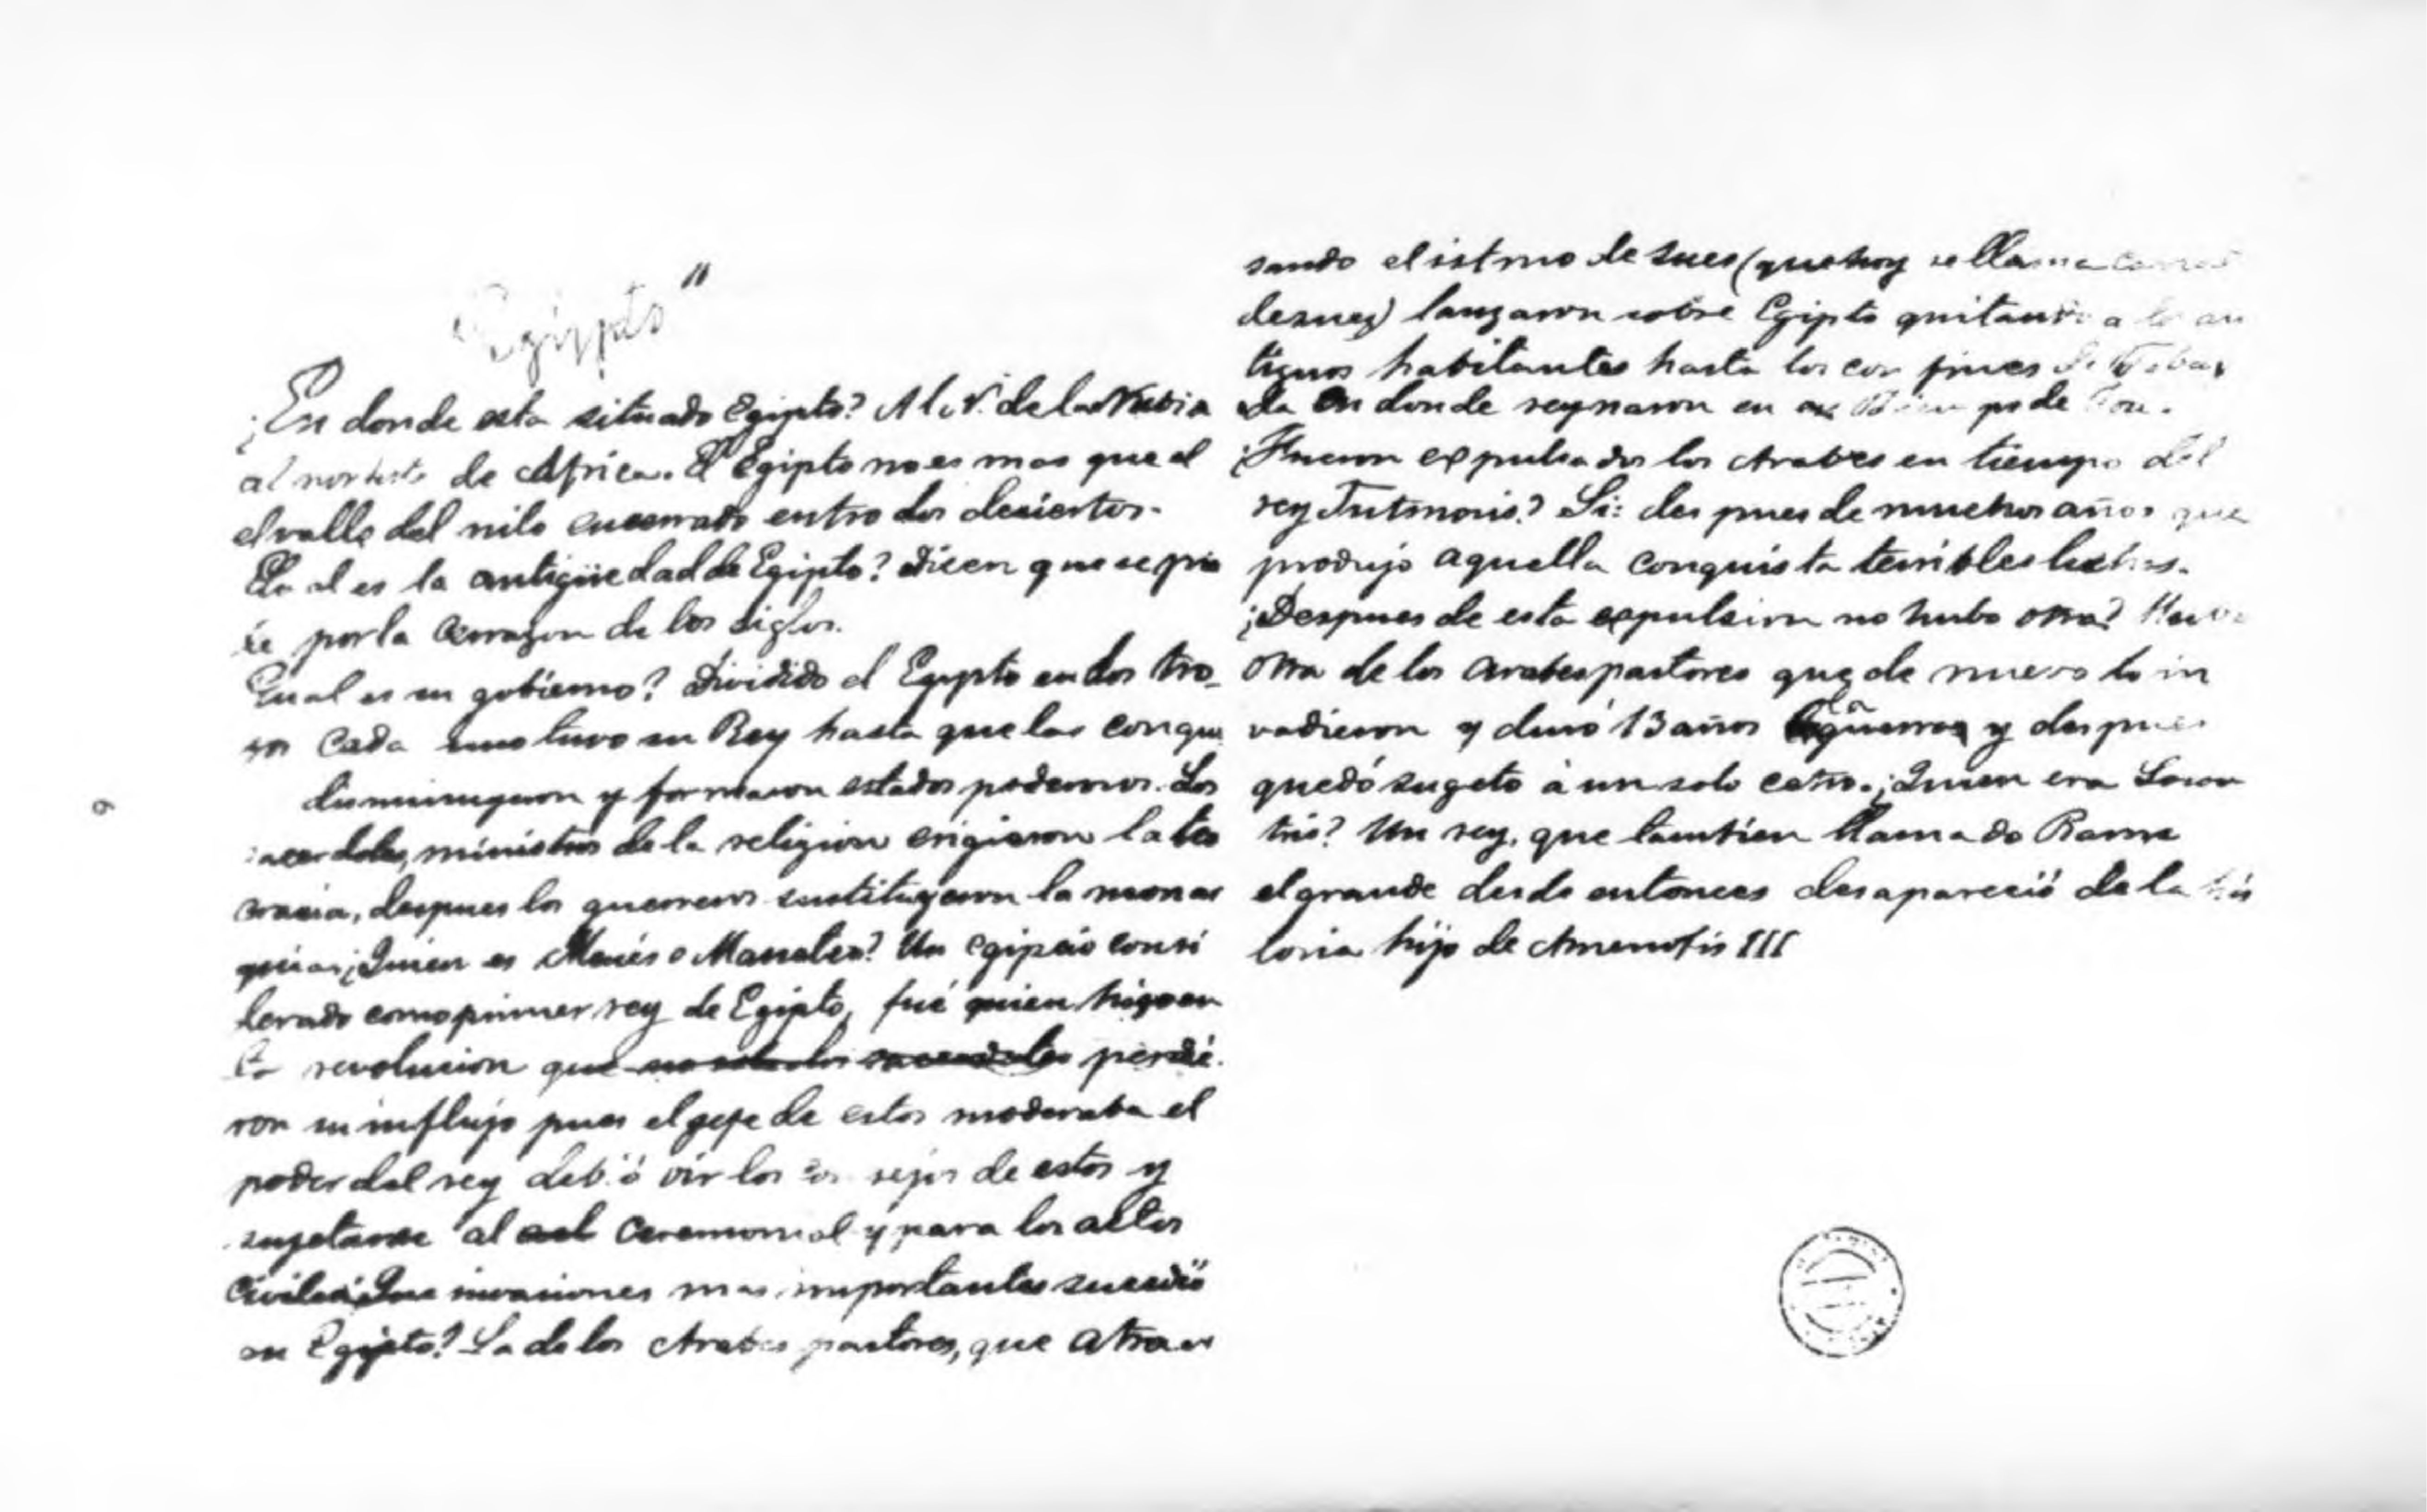 "Egipto"
¿En donde esta situado Egipto? Al N. de la Nubia
al nordeste de Africa. El Egipto no es mas que el
el valle del nilo encerrado entre dos desiertos.
Cual es la antigüedad de Egipto? dicen que se pier
de por la cerrazon de los siglos.
Cual es su gobierno? Dividido el Egypto en dos tro-
nos Cada uno tuvo su Rey hasta que las conqui
disminuyeron y formaron estados poderosos. Los
sacerdotes, ministros de la religion erigieron la teo
cracia, despues los guerreros sustituyeron la monar
quia ¿Quien es Menés o Manates? Un egipcio consi
derado como primer rey de Egipto, fué quien hizo en
la revolucion que perdie
ron su influjo pues el gefe de estos moderaba el
poder del rey debió oir los consejos de estos y
sugetarse al ceremonial y para los actos
civiles ¿Que invasiones mas importantes sucedió
en Egipto? La de los Arabes pastores, que atrave
sando el istmo de sues (que hoy se llama canal
de suez) lanzaron sobre Egipto quitando a los an
tiguos habitantes hasta los confines de Tebai
da En donde reynaron en
¿Fueron expulsados los Arabes en tiempo del
rey Tutmosis? Si: despues de muchos años que
produjo aquella conquista terribles luchas.
¿Despues de esta expulsion no hubo otra? Hubo
otra de los Arabes pastores que de nuevo lo in
vadieron y duró 13 años la guerra y despues
quedó sugeto á un solo cetro. ¿Quien era Sesos
tris? Un rey, que tambien llamado Rame
el grande desde entonces desapareció de la his
toria hijo de Amenofis III